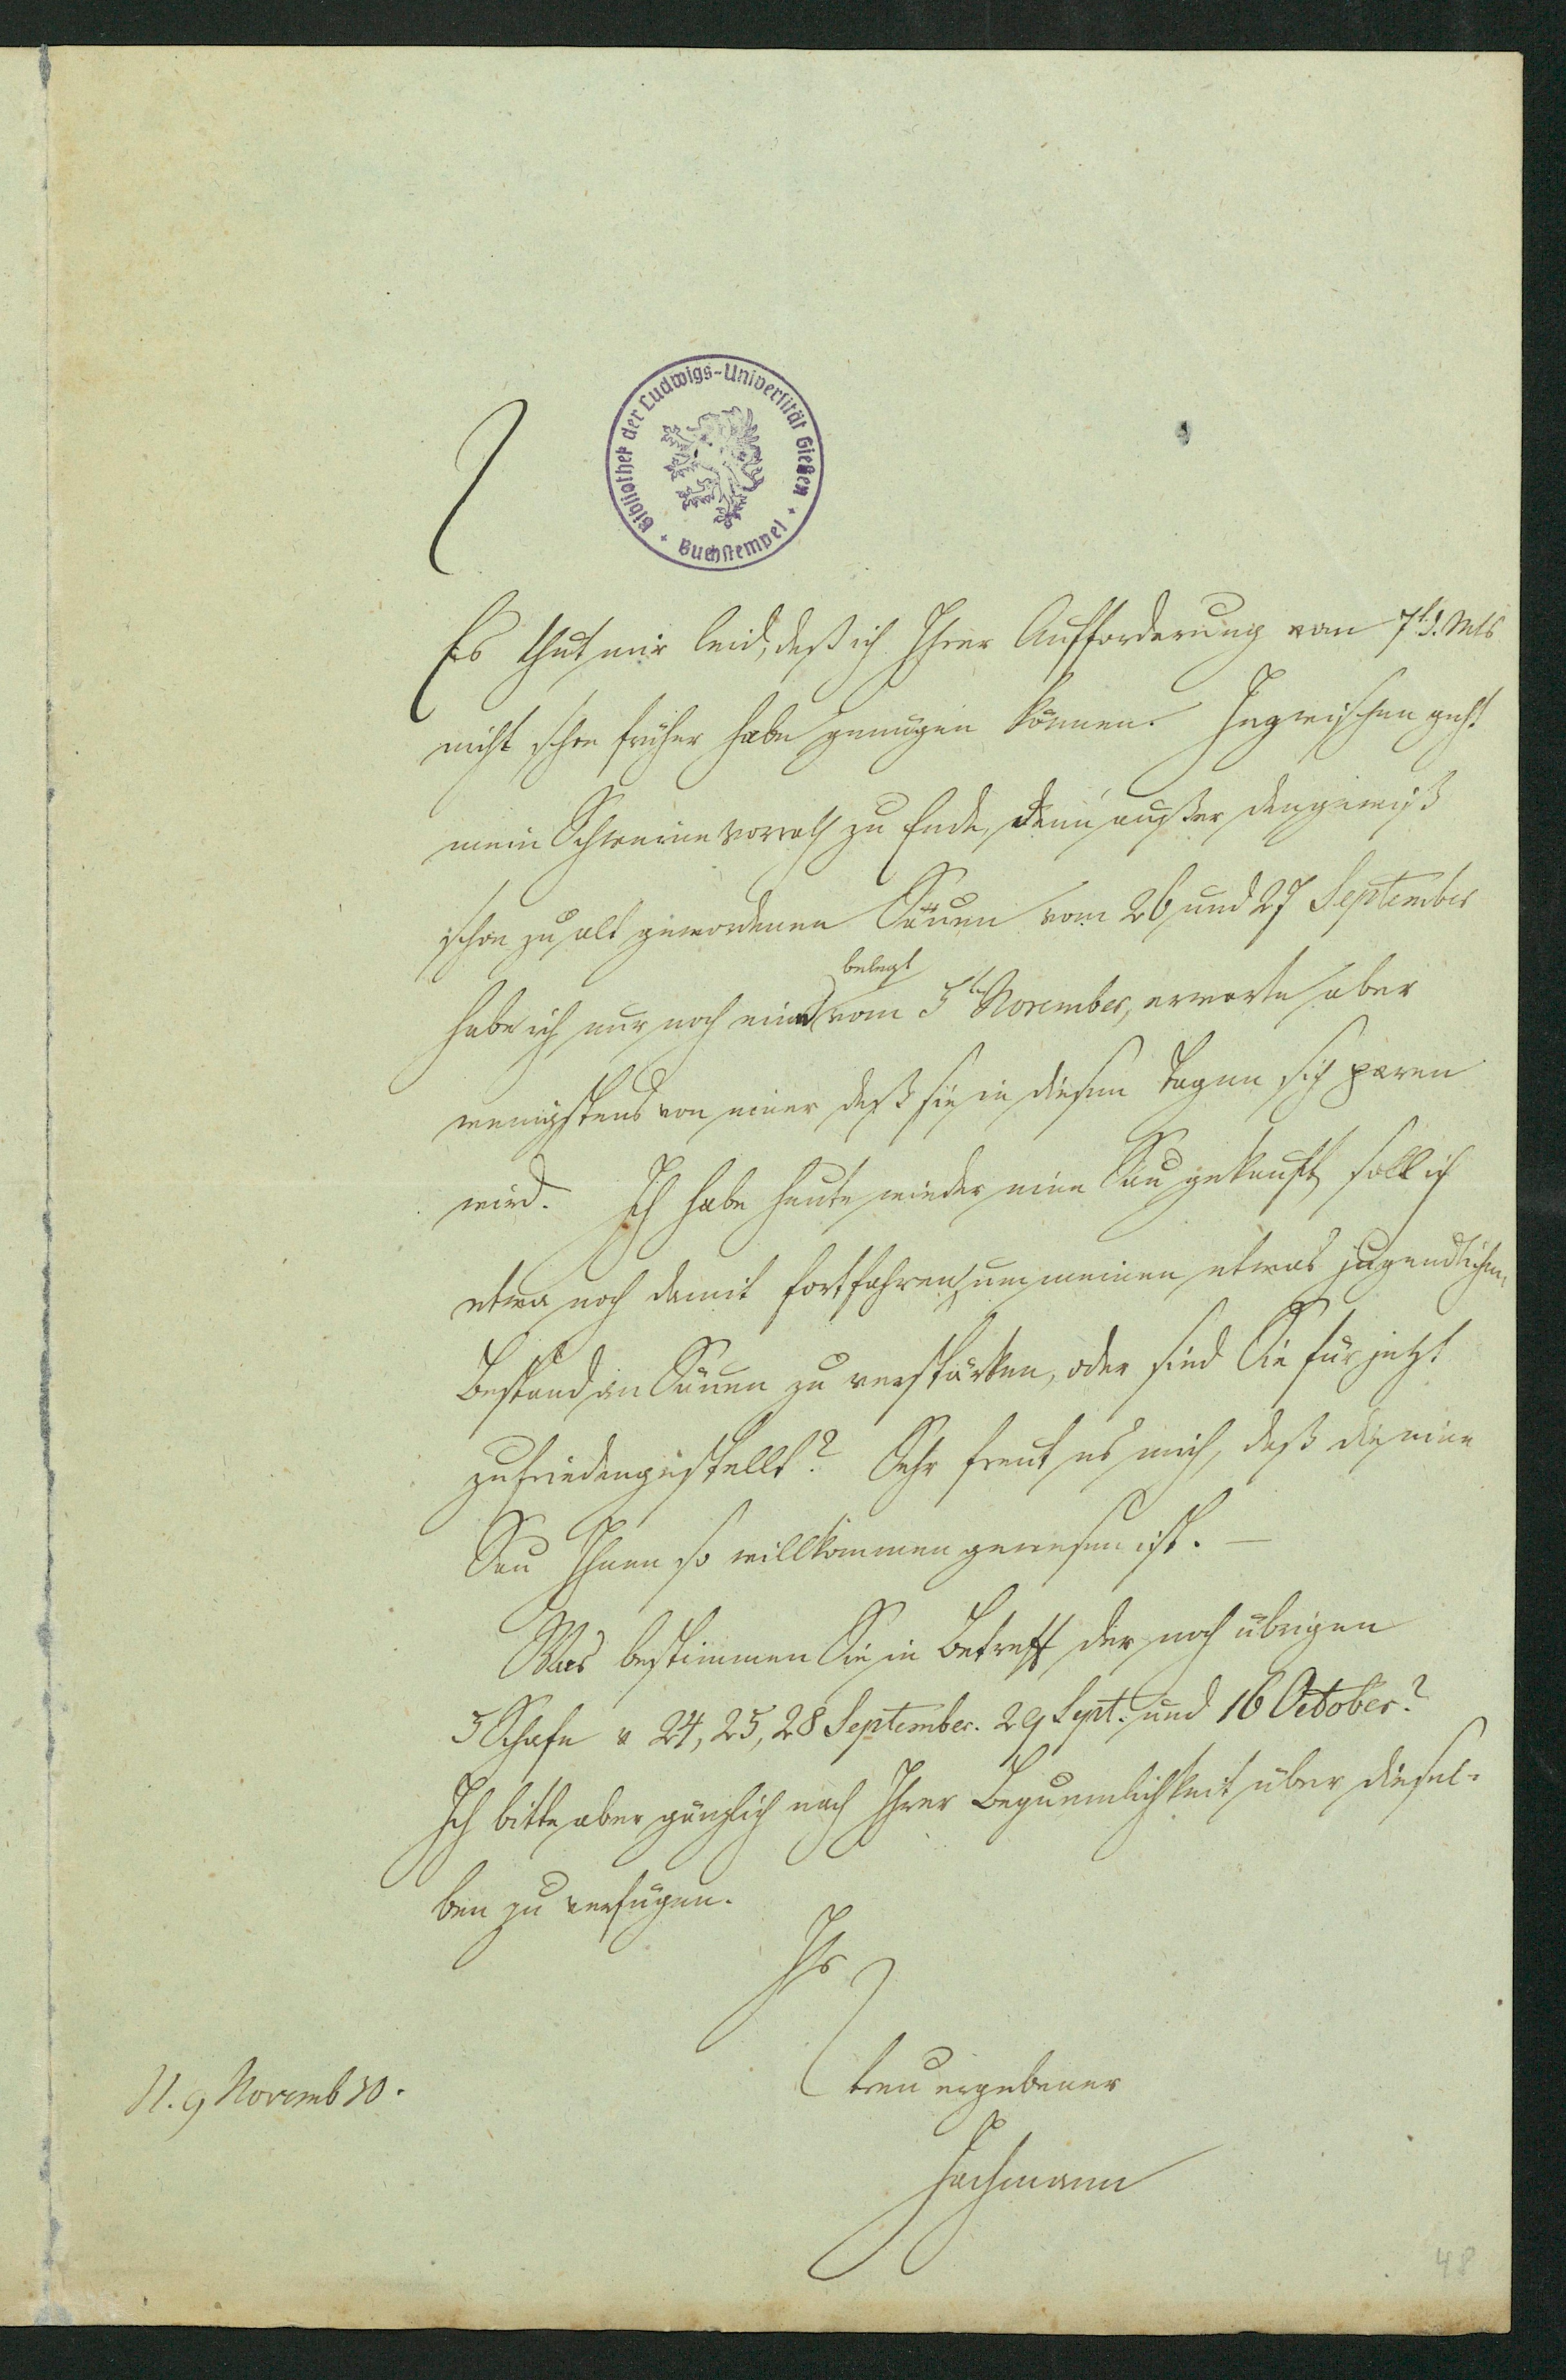 Bibliothek der Ludwigs-Universität Gießen
Buchstempel
Es thut mir leid, daß ich Ihrer Aufforderung vom 7t d. Mts
nicht schon früher habe genügen können. Inzwischen geht
mein Schweinevorrath zu Ende, denn außer den gewiß
schon zu alt gewordenen Säuen vom 26 und 27 September
belegt
habe ich nur noch eine vom 5ten November, erwarte aber
wenigstens von einer daß sie in diesen Tagen sich paren
wird. Ich habe heute wieder eine Sau gekauft, soll ich
etwa noch damit fortfahren, um meinen etwas jugendlichen
Bestand an Säuen zu verstärken, oder sind Sie für jetzt
zufriedengestellt? Sehr freut es mich, daß die eine
Sau Ihnen so willkommen gewesen ist. —
Was bestimmen Sie in Betreff der noch übrigen
5 Schafe v 24, 25, 28 September. 29 Sept. und 16 October?
Ich bitte aber gänzlich nach Ihrer Bequemlichkeit über diesel-
ben zu verfügen.
Ihr
treu ergebener
Hachmann
9 Novemb
48